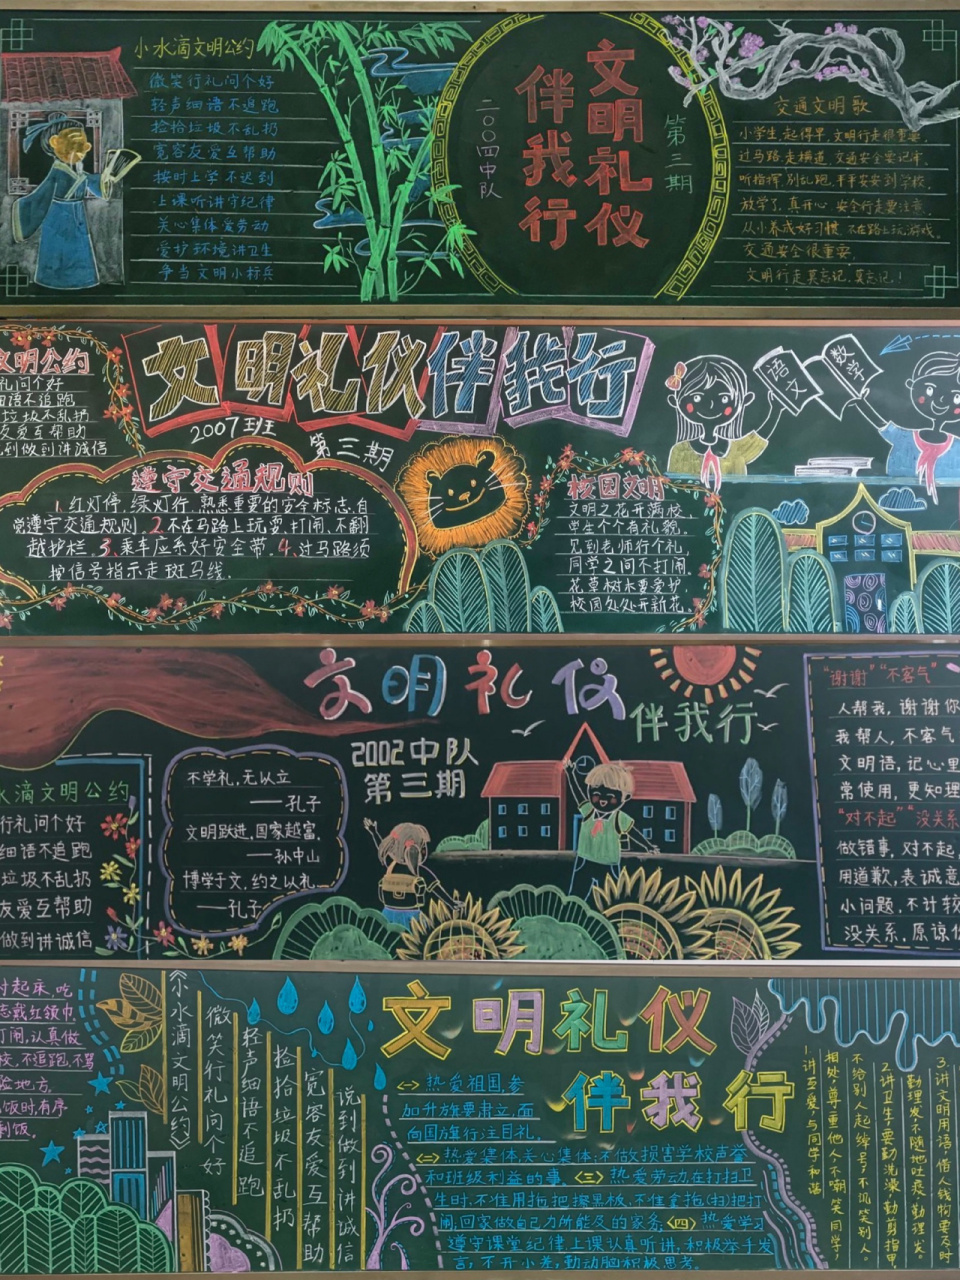 小水滴文明公约
微笑行礼问个好
轻声细语不追跑
捡拾垃圾不乱扔
宽容友爱互帮助
按时上学不迟到
上课听讲守纪律
关心集体爱劳动
爱护环境讲卫生
争当文明小标兵
二〇〇四中队
文明礼仪
伴我行
第三期
交通文明歌
小学生,起得早,文明行走很重要.
过马路,走横道,交通安全要记牢.
听指挥,别乱跑,平平安安到学校.
放学了,真开心,安全行走要注意.
从小养成好习惯,不在路上玩游戏.
交通安全很重要,
文明行走莫忘记,莫忘记!
文明公约
礼问个好
细语不追跑
垃圾不乱扔
友爱互帮助
到做到讲诚信
文明礼仪伴我行
2007班
第三期
遵守交通规则
1.红灯停,绿灯行,熟悉重要的安全标志,自
觉遵守交通规则.2.不在马路上玩耍,打闹,不翻
越护栏.3.乘车应系好安全带.4.过马路须
按信号指示走斑马线.
校园文明
文明之花开满校,
学生个个有礼貌,
见到老师行个礼,
同学之间不打闹.
花草树木要爱护,
校园处处开新花.
语文
数学
文明礼仪
伴我行
2002中队
第三期
水滴文明公约
行礼问个好
细语不追跑
垃圾不乱扔
友爱互帮助
做到讲诚信
不学礼,无以立
——孔子
文明跃进,国家越富,
——孙中山
博学于文,约之以礼
——孔子
“谢谢”“不客气”
人帮我,谢谢你
我帮人,不客气
文明语,记心里
常使用,更知理
“对不起”“没关系
做错事,对不起,
用道歉,表诚意
小问题,不计较
没关系,原谅你
时起床,吃
志戴红领巾
打闹,认真做
校,不追跑,不骂
饭时,有序
剩饭。
《小水滴文明公约》
微笑行礼问个好
轻声细语不追跑
捡拾垃圾不乱扔
宽容友爱互帮助
说到做到讲诚信
文明礼仪
伴我行
<一>热爱祖国,参
加升旗要肃立,面
向国旗行注目礼。
<二>热爱集体,关心集体;不做损害学校声誉
和班级利益的事。<三>热爱劳动,在打扫卫
生时,不准用拖把擦黑板,不准拿拖(扫)把打
闹;回家做自己力所能及的家务。<四>热爱学习
遵守课堂纪律,上课认真听讲,积极举手发
言,不开小差,勤动脑积极思考。
1.讲互爱,与同学和谐
相处,尊重他人,不嘲笑同学,
不给别人起绰号,不讥笑别人。
2.讲卫生,要勤洗澡,勤剪指甲,
勤理发,不随地吐痰,勤理发。
3.讲文明用语,借人钱物要及时